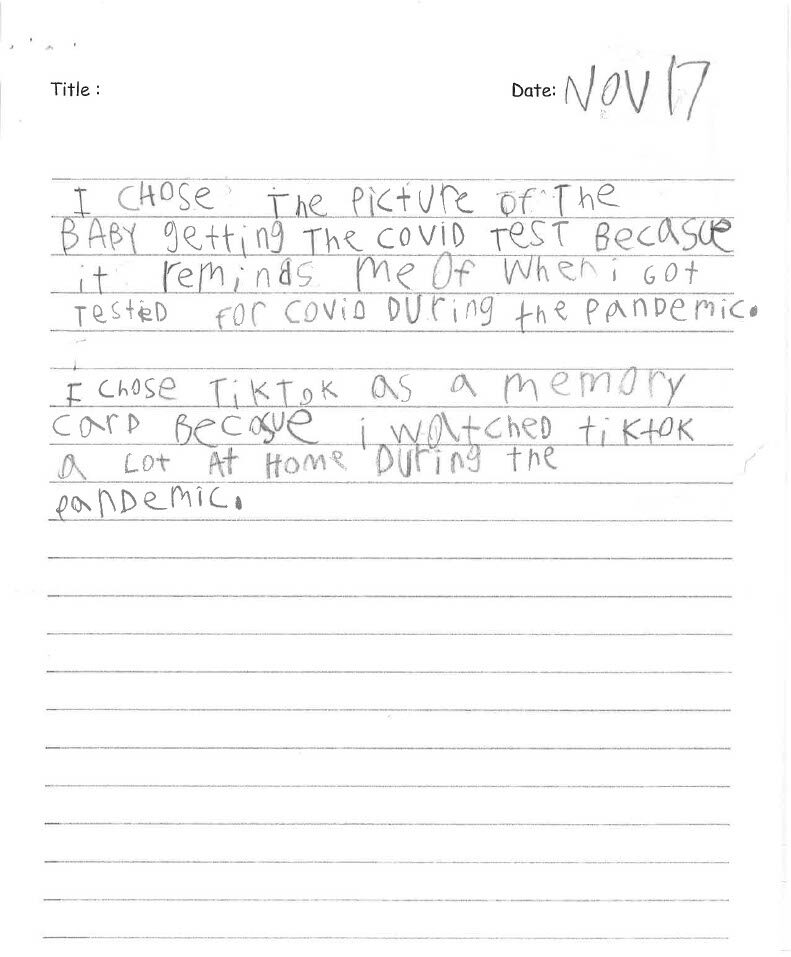 Title :
Date: NOV 17
I CHOSE The PictUre OF The
BABY getting The COVID TEST BecasUe
it reminds me Of When i GOt
TesteD FOr COViD DUring the PanDemic.
I Chose TiKTOK as a memory
CarD BecasUe i watcheD tiKtOK
a Lot At Home DUring the
panDemic.